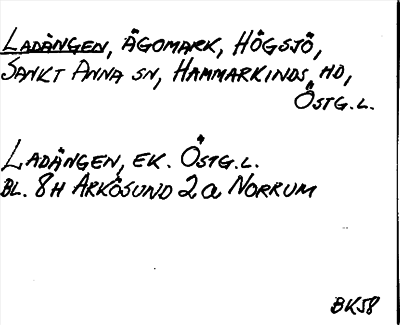 LADÄNGEN, ÄGOMARK, HÖGSJÖ,
SANKT ANNA SN, HAMMARKINDS HD,
ÖSTG.L.
LADÄNGEN, EK. ÖSTG.L.
BL. 8H ARKÖSUND 2a NORRUM
BK58